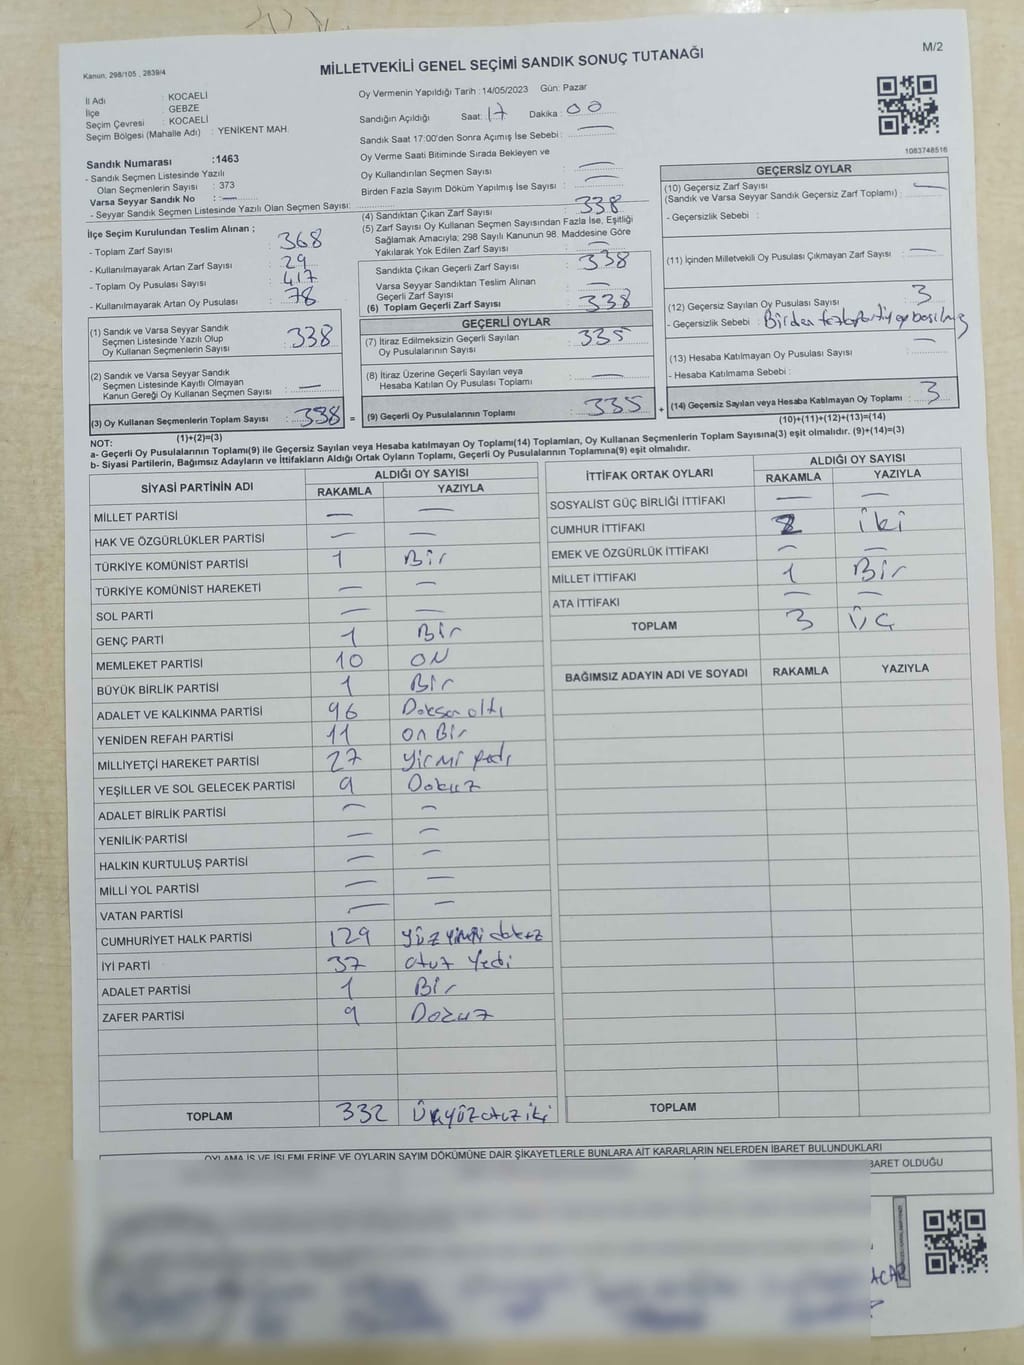 Kanun, 298/105 , 2839/4
MİLLETVEKİLİ GENEL SEÇİMİ SANDIK SONUÇ TUTANAĞI
M/2
İl Adı : KOCAELİ
İlçe : GEBZE
Seçim Çevresi : KOCAELİ
Seçim Bölgesi (Mahalle Adı) : YENİKENT MAH.
Sandık Numarası :1463
- Sandık Seçmen Listesinde Yazılı
Olan Seçmenlerin Sayısı : 373
Varsa Seyyar Sandık No : —
- Seyyar Sandık Seçmen Listesinde Yazılı Olan Seçmen Sayısı:
Oy Vermenin Yapıldığı Tarih : 14/05/2023 Gün: Pazar
Sandığın Açıldığı Saat: 17 Dakika : 00
Sandık Saat 17:00'den Sonra Açımış İse Sebebi : —
Oy Verme Saati Bitiminde Sırada Bekleyen ve
Oy Kullandırılan Seçmen Sayısı : —
Birden Fazla Sayım Döküm Yapılmış İse Sayısı : —
1083748516
İlçe Seçim Kurulundan Teslim Alınan ;
- Toplam Zarf Sayısı : 368
- Kullanılmayarak Artan Zarf Sayısı : 29
- Toplam Oy Pusulası Sayısı : 417
- Kullanılmayarak Artan Oy Pusulası : 78
(1) Sandık ve Varsa Seyyar Sandık
Seçmen Listesinde Yazılı Olup
Oy Kullanan Seçmenlerin Sayısı : 338
(2) Sandık ve Varsa Seyyar Sandık
Seçmen Listesinde Kayıtlı Olmayan
Kanun Gereği Oy Kullanan Seçmen Sayısı : —
(3) Oy Kullanan Seçmenlerin Toplam Sayısı : 338 =
(1)+(2)=(3)
(4) Sandıktan Çıkan Zarf Sayısı : 338
(5) Zarf Sayısı Oy Kullanan Seçmen Sayısından Fazla İse, Eşitliği
Sağlamak Amacıyla; 298 Sayılı Kanunun 98. Maddesine Göre
Yakılarak Yok Edilen Zarf Sayısı : —
Sandıkta Çıkan Geçerli Zarf Sayısı : 338
Varsa Seyyar Sandıktan Teslim Alınan
Geçerli Zarf Sayısı : —
(6) Toplam Geçerli Zarf Sayısı : 338
GEÇERLİ OYLAR
(7) İtiraz Edilmeksizin Geçerli Sayılan
Oy Pusulalarının Sayısı : 335
(8) İtiraz Üzerine Geçerli Sayılan veya
Hesaba Katılan Oy Pusulası Toplamı : —
(9) Geçerli Oy Pusulalarının Toplamı : 335 +
GEÇERSİZ OYLAR
(10) Geçersiz Zarf Sayısı
(Sandık ve Varsa Seyyar Sandık Geçersiz Zarf Toplamı) : —
- Geçersizlik Sebebi :
(11) İçinden Milletvekili Oy Pusulası Çıkmayan Zarf Sayısı : —
(12) Geçersiz Sayılan Oy Pusulası Sayısı : 3
- Geçersizlik Sebebi : Birden fazla partiye oy basılmış
(13) Hesaba Katılmayan Oy Pusulası Sayısı : —
- Hesaba Katılmama Sebebi :
(14) Geçersiz Sayılan veya Hesaba Katılmayan Oy Toplamı : 3
(10)+(11)+(12)+(13)=(14)
NOT:
a- Geçerli Oy Pusulalarının Toplamı(9) ile Geçersiz Sayılan veya Hesaba katılmayan Oy Toplamı(14) Toplamları, Oy Kullanan Seçmenlerin Toplam Sayısına(3) eşit olmalıdır. (9)+(14)=(3)
b- Siyasi Partilerin, Bağımsız Adayların ve İttifakların Aldığı Ortak Oyların Toplamı, Geçerli Oy Pusulalarının Toplamına(9) eşit olmalıdır.
SİYASİ PARTİNİN ADI ALDIĞI OY SAYISI
RAKAMLA YAZIYLA
MİLLET PARTİSİ — —
HAK VE ÖZGÜRLÜKLER PARTİSİ — —
TÜRKİYE KOMÜNİST PARTİSİ 1 Bir
TÜRKİYE KOMÜNİST HAREKETİ — —
SOL PARTİ — —
GENÇ PARTİ 1 Bir
MEMLEKET PARTİSİ 10 ON
BÜYÜK BİRLİK PARTİSİ 1 Bir
ADALET VE KALKINMA PARTİSİ 96 Doksan altı
YENİDEN REFAH PARTİSİ 11 on Bir
MİLLİYETÇİ HAREKET PARTİSİ 27 yirmi yedi
YEŞİLLER VE SOL GELECEK PARTİSİ 9 Dokuz
ADALET BİRLİK PARTİSİ — —
YENİLİK PARTİSİ — —
HALKIN KURTULUŞ PARTİSİ — —
MİLLİ YOL PARTİSİ — —
VATAN PARTİSİ — —
CUMHURİYET HALK PARTİSİ 129 yüz yirmi dokuz
İYİ PARTİ 37 otuz yedi
ADALET PARTİSİ 1 Bir
ZAFER PARTİSİ 9 Dokuz
TOPLAM 332 Üçyüzotuz iki
İTTİFAK ORTAK OYLARI ALDIĞI OY SAYISI
RAKAMLA YAZIYLA
SOSYALİST GÜÇ BİRLİĞİ İTTİFAKI — —
CUMHUR İTTİFAKI 2 iki
EMEK VE ÖZGÜRLÜK İTTİFAKI — —
MİLLET İTTİFAKI 1 Bir
ATA İTTİFAKI — —
TOPLAM 3 ÜÇ
BAĞIMSIZ ADAYIN ADI VE SOYADI RAKAMLA YAZIYLA
TOPLAM
OYLAMA İŞ VE İŞLEMLERİNE VE OYLARIN SAYIM DÖKÜMÜNE DAİR ŞİKAYETLERLE BUNLARA AİT KARARLARIN NELERDEN İBARET BULUNDUKLARI
BARET OLDUĞU
ACAR